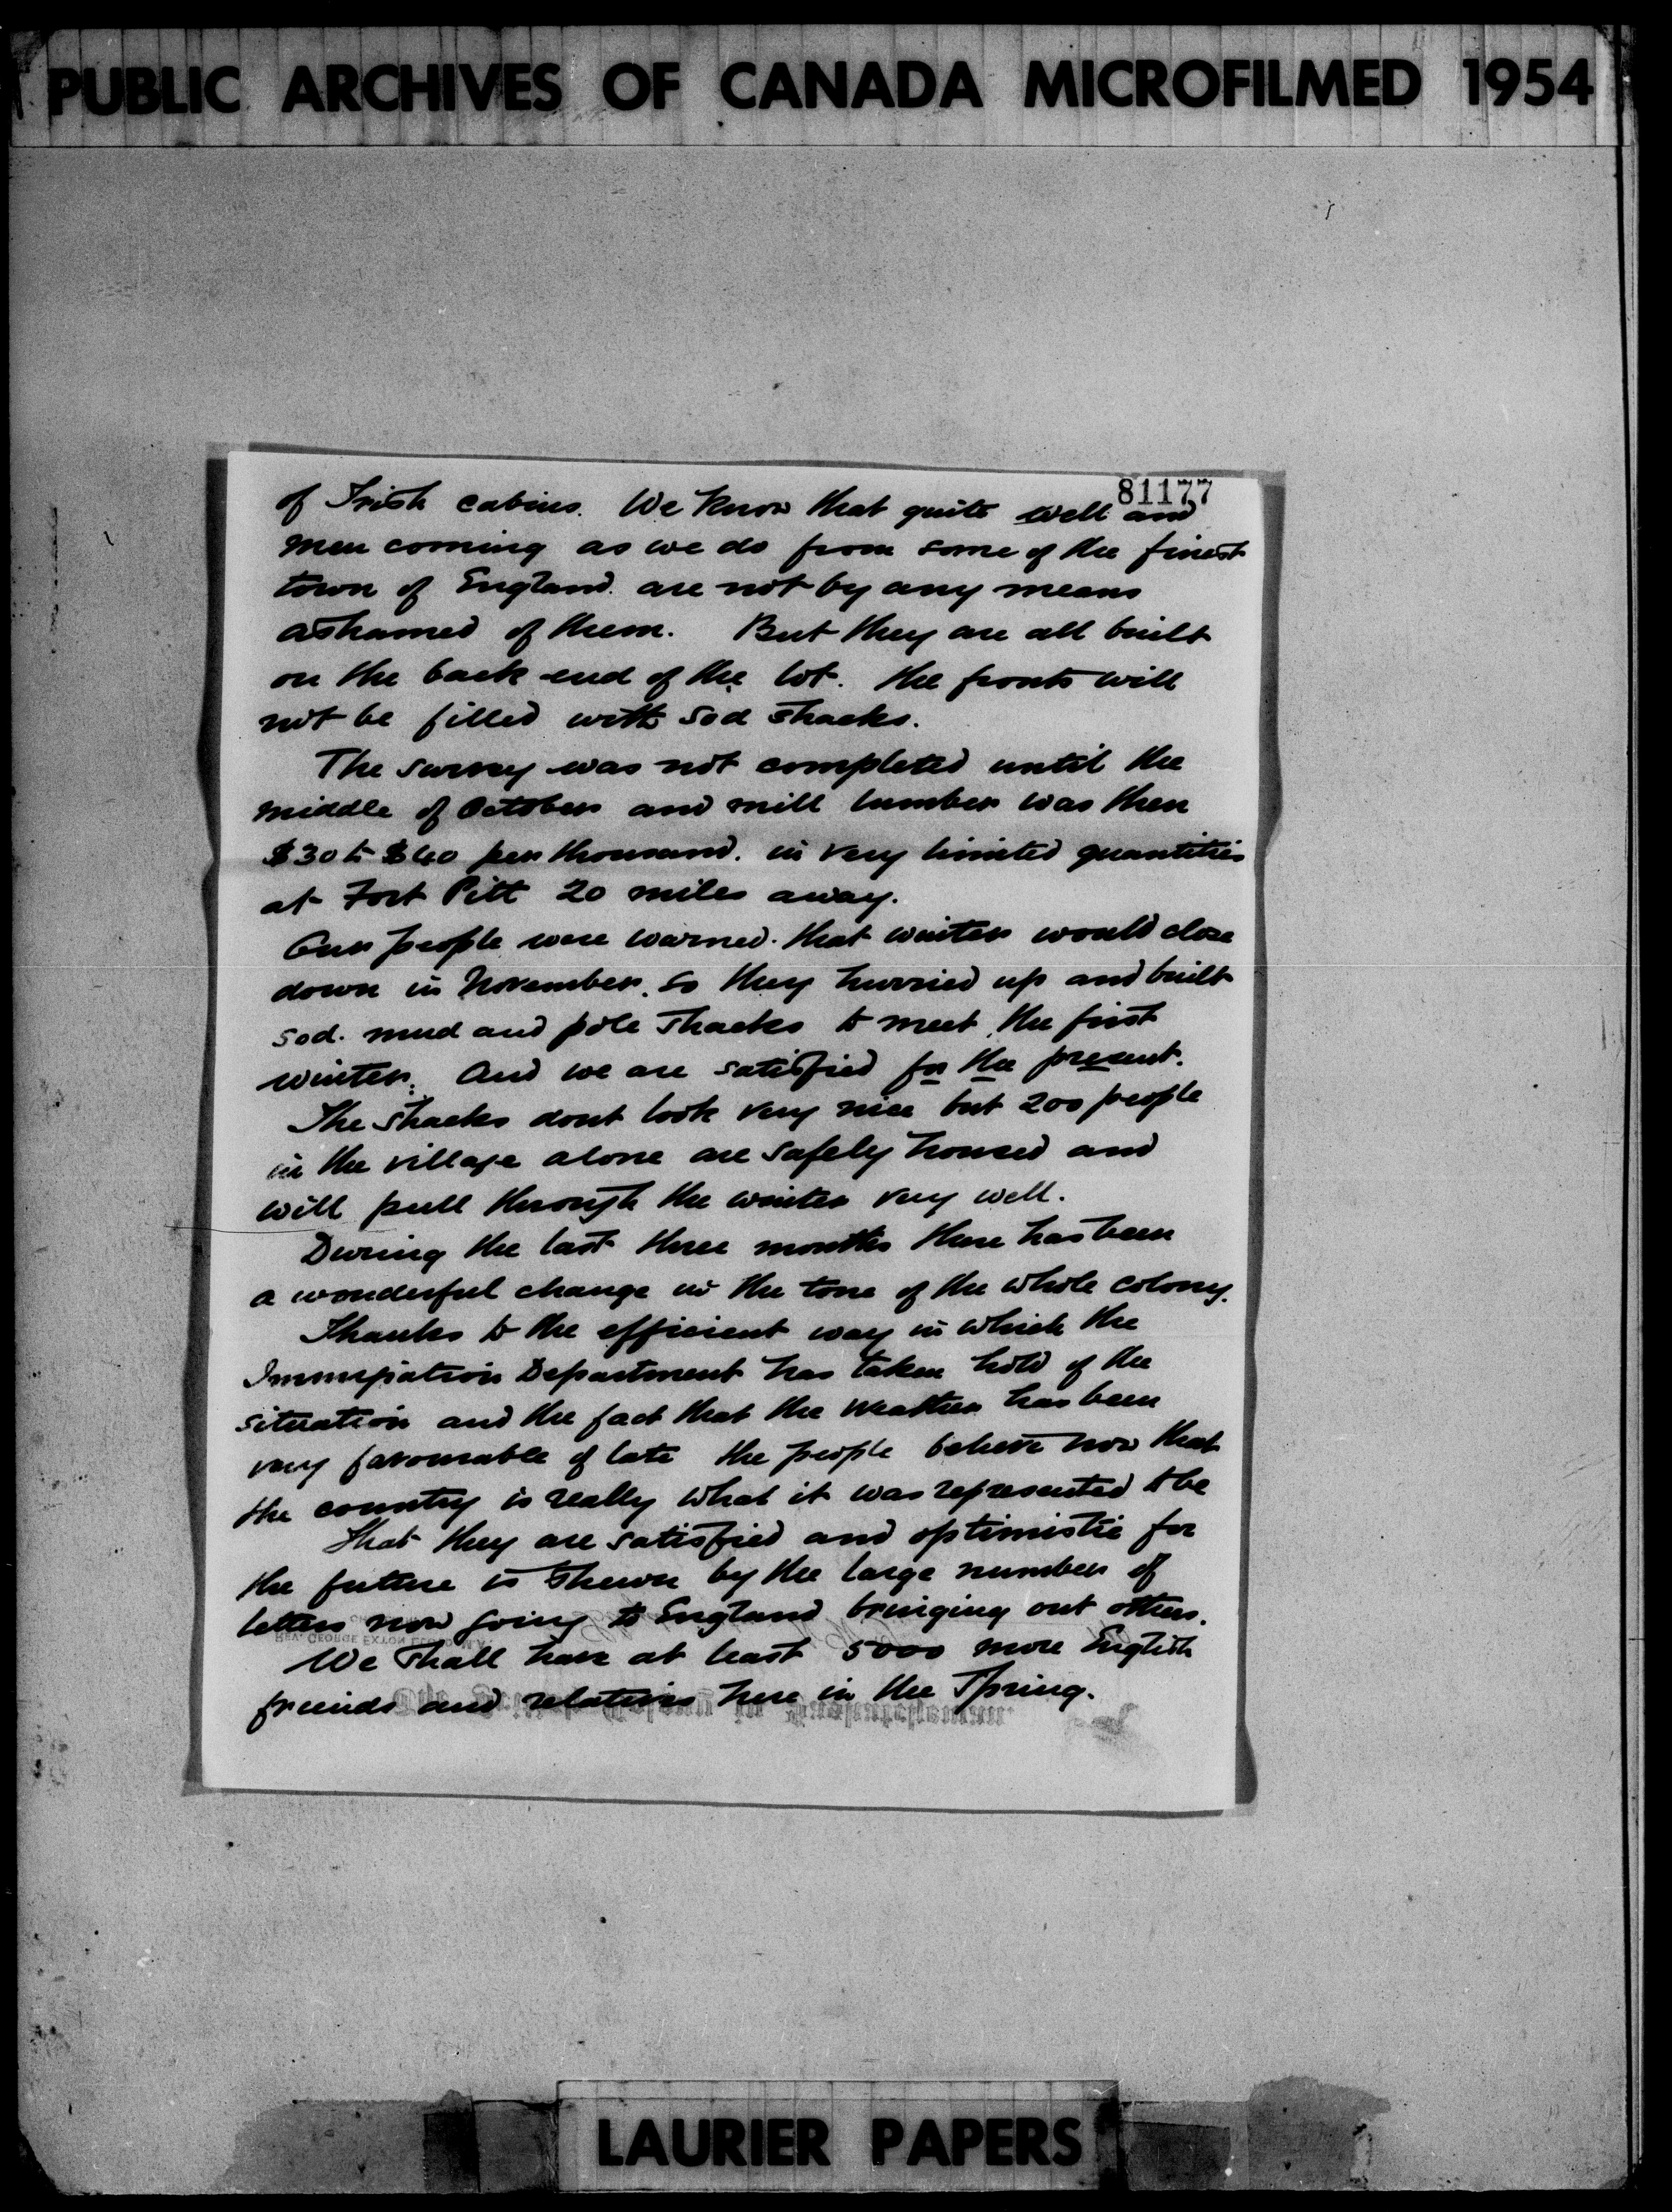 PUBLIC ARCHIVES OF CANADA MICROFILMED 1954
81177
of Irish cabins. We know that quite well and
men coming as we do from some of the finest
town of England. are not by any means
ashamed of them. But they are all built
on the back end of the lot. the fronts will
not be filled with sod shacks.
The survey was not completed until the
middle of October and mill lumber was then
$30 to $40 per thousand. in very limited quantities
at Fort Pitt 20 miles away.
Our people were warned. that winter would close
down in November. so they hurried up and built
sod. mud and pole shacks to meet the first
winter. And we are satisfied for the present.
The shacks dont look very nice but 200 people
in the village alone are safely housed and
will pull through the winter very well.
During the last three months there has been
a wonderful change in the tone of the whole colony.
Thanks to the efficient way in which the
Immigration Department has taken hold of the
situation and the fact that the weather has been
very favourable of late the people believe now that
the country is really what it was represented to be
That they are satisfied and optimistic for
the future is shewn by the large number of
letters now going to England bringing out others.
We shall have at least 5000 more English
friends and relatives here in the Spring.
LAURIER PAPERS